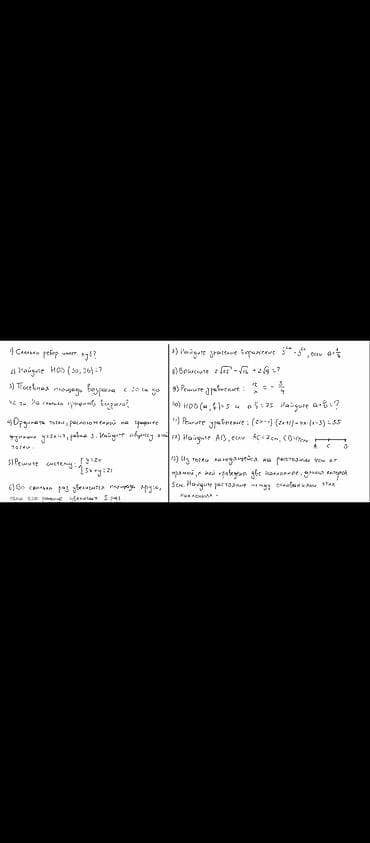 1) Сколько ребер имеет куб?
2) Найдите НОД (30, 36) = ?
3) Посевная площадь возросла с га до
га. На сколько процентов возросла?
4) Ордината точки, расположенной на графике
функции равна 3. Найдите абсциссу этой
точки.
5) Решите систему: { y=2x
5x+y=21
6) Во сколько раз увеличится площадь круга,
если его радиус увеличат
7) Найдите значение выражения если
8) Вычислите
9) Решите уравнение:
10) НОД (a, b) = 5 и a·b = 75 Найдите a+b=?
11) Решите уравнение: (2x-1)·(2x+1)-4x·(x-3)=35
12) Найдите AB, если AC=7см, CB=
A C B
13) Из точки находящейся на расстоянии 4см от
прямой, к ней проведены две наклонные, длина которой
5см. Найдите расстояние между основаниями этих
наклонных.